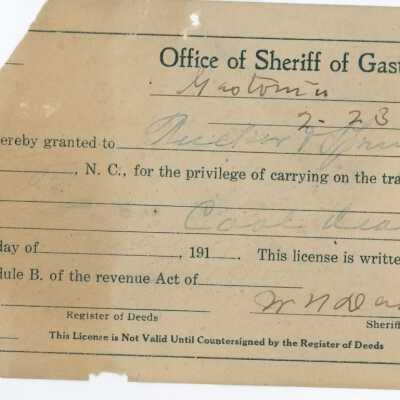 Office of Sheriff of Gast
Gastonia
2-23
hereby granted to
, N. C., for the privilege of carrying on the tra
Coal Dea
day of , 191 . This license is written
dule B. of the revenue Act of
W N Da
Register of Deeds
Sheriff
This License is Not Valid Until Countersigned by the Register of Deeds